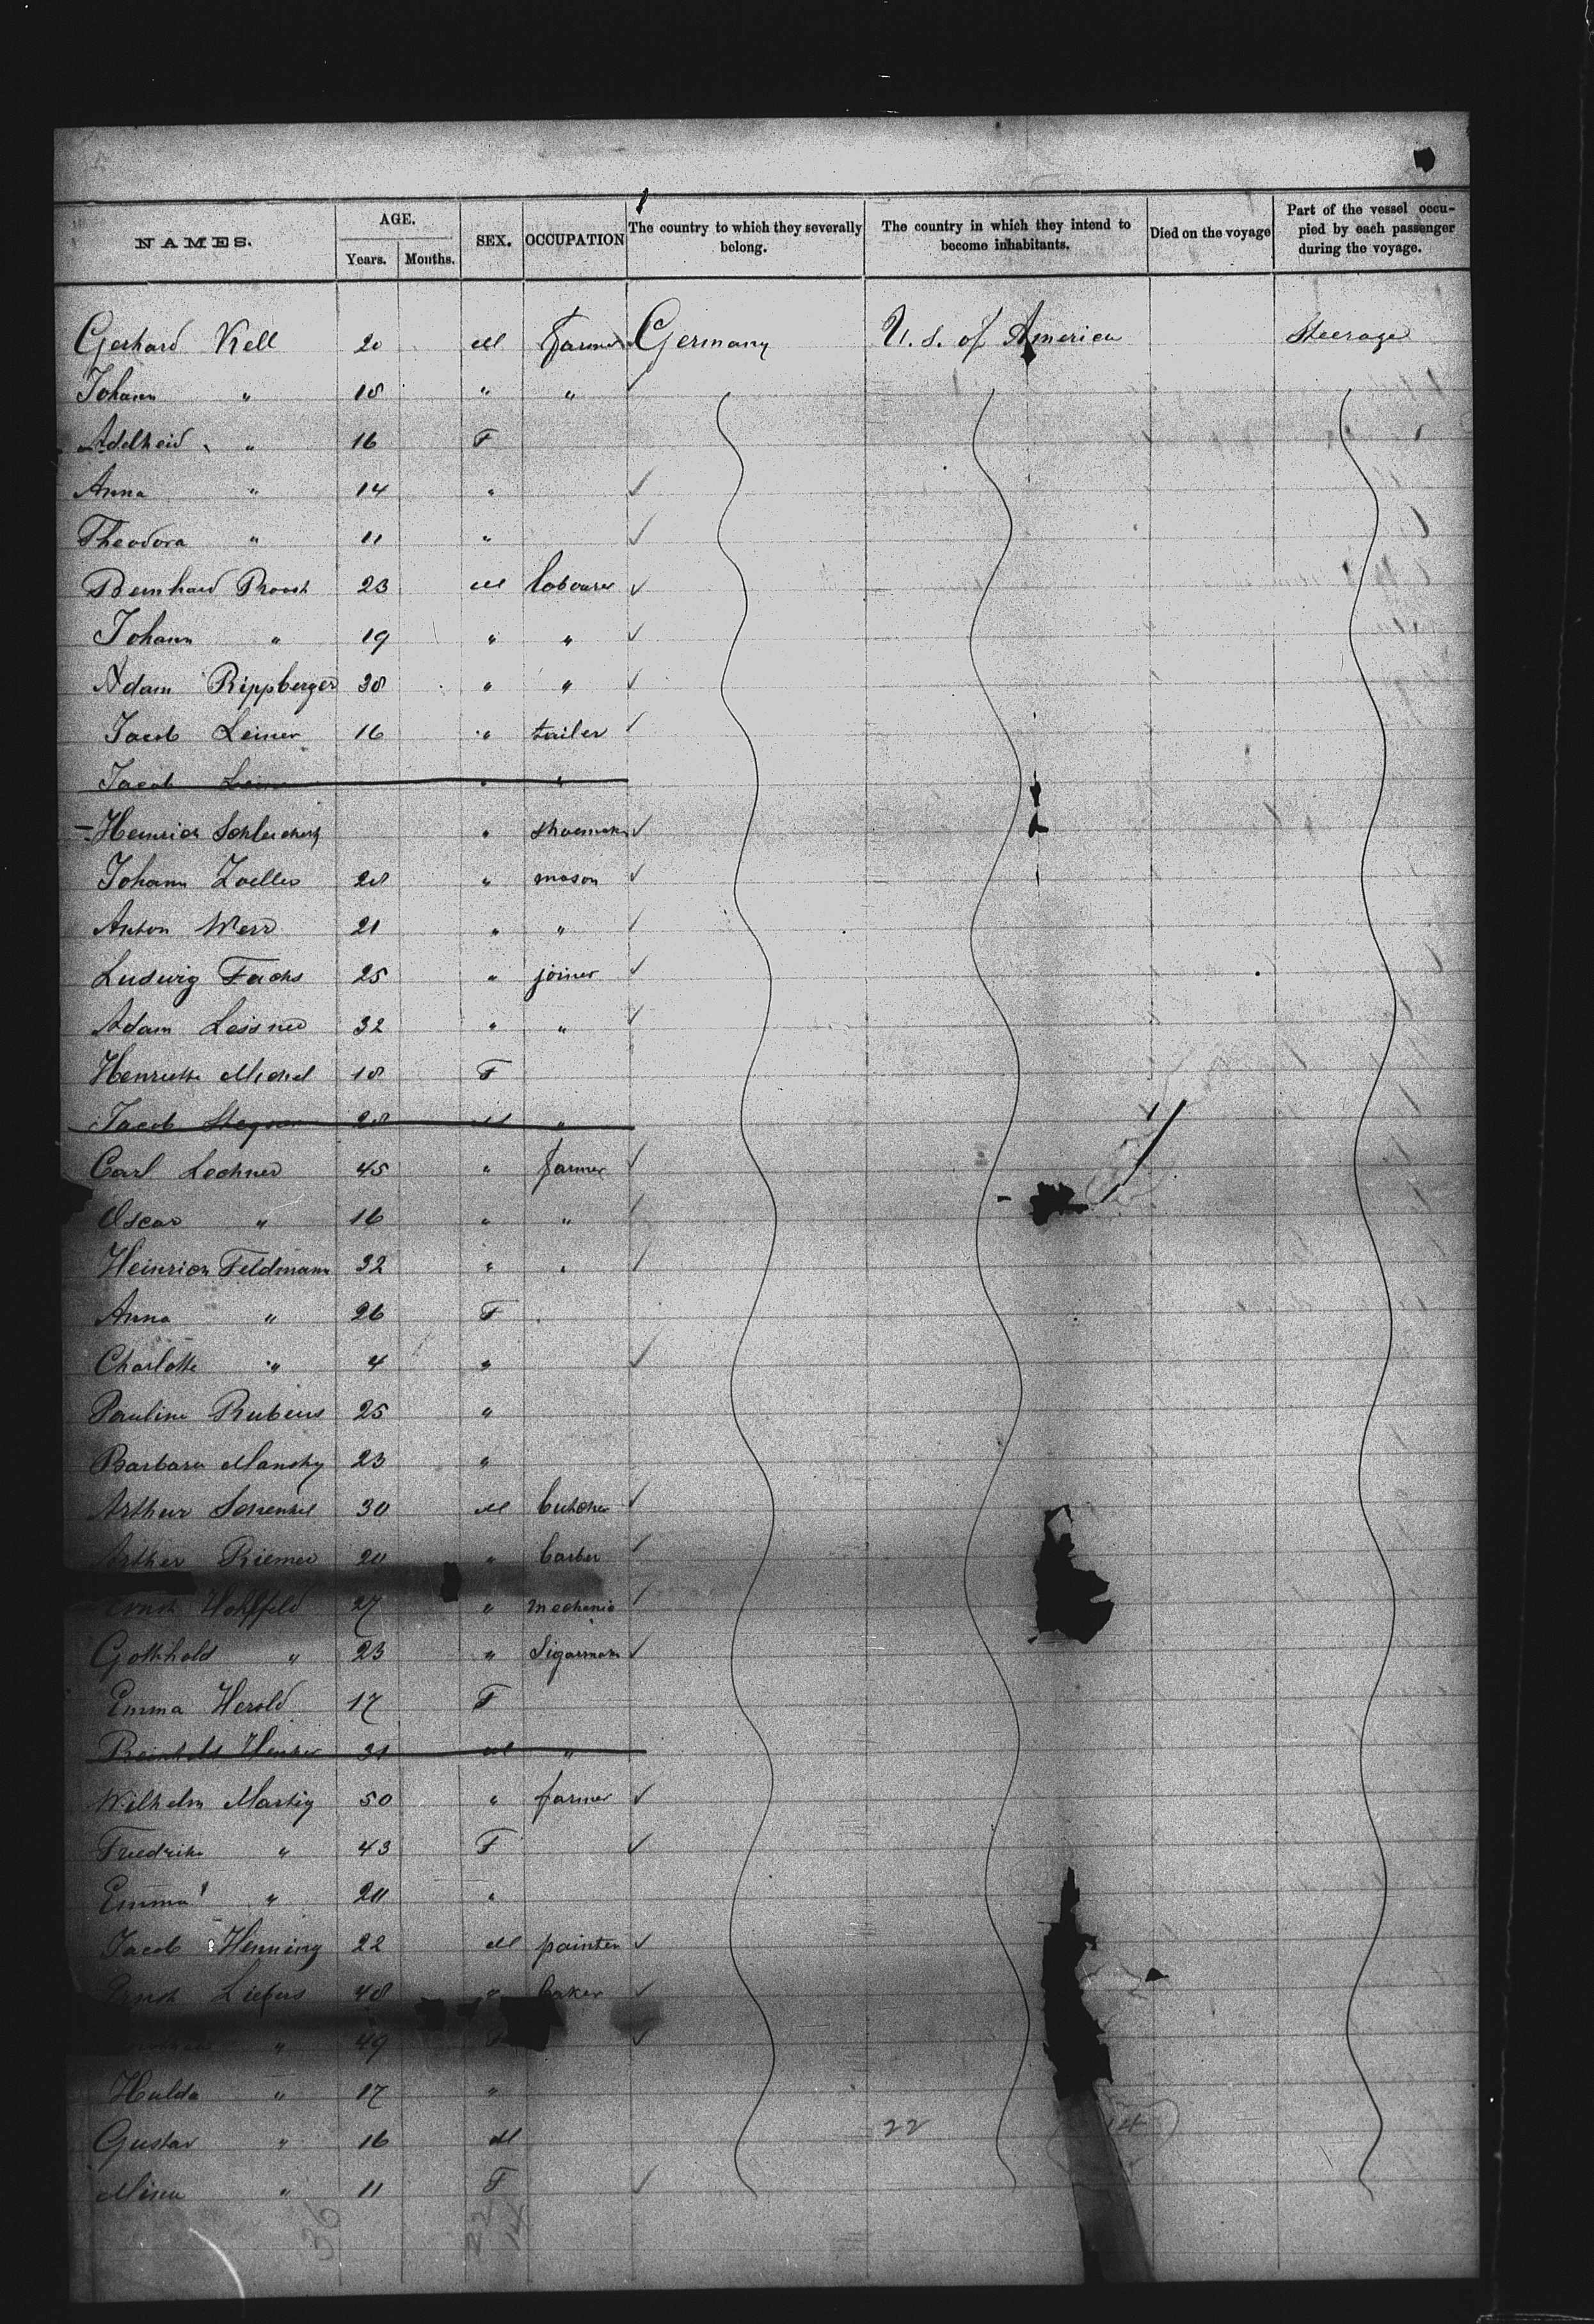 NAMES. AGE. Years. Months. SEX. OCCUPATION The country to which they severally belong. The country in which they intend to become inhabitants. Died on the voyage Part of the vessel occupied by each passenger during the voyage.
Gerhard Kell 20 M farmer Germany U. S. of America Steerage
Johann " 18 " "
Adelheid " 16 F
Anna " 14 "
Theodora " 11 "
Bernhard 23 M labourer
Johann " 19 " "
Adam Rippberger 38 " "
Jacob Leiner 16 " tailer
Jacob " "
Heinrich " shoemak
Johann Zoeller 28 " mason
Anton 21 " "
Ludwig Fuchs 25 " joiner
Adam Leisner 32 " "
Henriette Michel 18 F
Jacob 28 M "
Carl Lechner 45 " farmer
Oscar " 16 " "
Heinrich Feldmann 32 " "
Anna " 26 F
Charlotte " 4 "
Pauline Rubens 25 "
Barbara 23 "
Arthur Schenkel 30 M butcher
Arthur Riemer 20 " barber
Ernst 27 " mechanic
Gotthold " 23 " Sigarmak
Emma Herold 17 F
Reinhold 31 M "
Wilhelm Martig 50 " farmer
Fredrike " 43 F
Emma " 20 "
Jacob Henning 22 M painter
Ernst 48 " baker
" 49 F
Hulda " 17 "
Gustav " 16 M 22 14
" 11 F
36 22 14